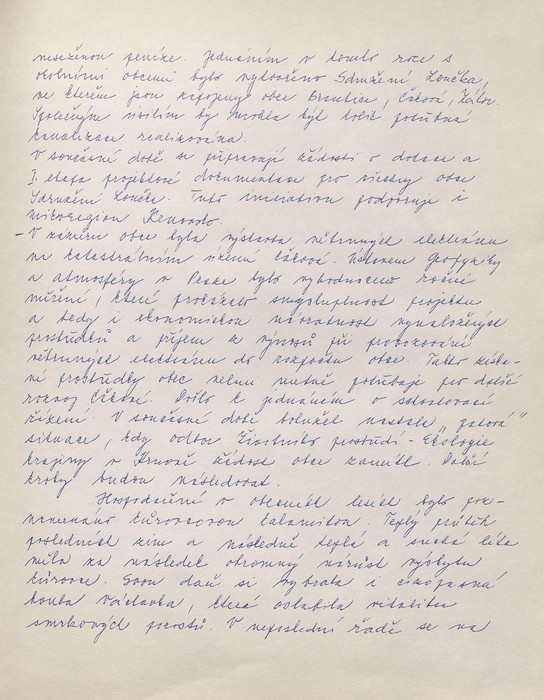 nesežene peníze. Jednáním v tomto roce s
okolními obcemi bylo vytvořeno Sdružení Loučka,
ve kterém jsou zapojeny obce Brantice, Čaková, Zátor.
Společným úsilím by mohla být tolik potřebná
kanalizace realizována.
V současné době se připravují žádosti o dotace a
I. etapa projektové dokumentace pro všechny obce
Sdružení Loučka. Tuto iniciativu podporuje i
mikroregion Krnovsko.
- V záměru obce byla výstavba větrných elektráren
na katastrálním území Čaková. Ústavem Geofyziky
a atmosféry v Praze bylo vyhodnoceno roční
měření, které prokázalo smysluplnost projektu
a tedy i ekonomickou návratnost vynaložených
prostředků a příjem z výnosů při provozování
větrných elektráren do rozpočtu obce. Takto získa-
né prostředky obec velmi nutně potřebuje pro další
rozvoj Čakové. Došlo k jednáním o odsouhlasovací
řízení. V současné době bohužel nastala "patová"
situace, kdy odbor Životního prostředí - Ekologie
krajiny v Krnově žádost obce zamítl. Další
kroky budou následovat.
Hospodaření v obecních lesích bylo poz-
namenáno kůrovcovou kalamitou. Teplý průběh
posledních zim a následně teplá a suchá léta
měla za následek ohromný nárůst výskytu
kůrovce. Svou daň si vybrala i cizopasná
houba Václavka, která oslabila vitalitu
smrkových porostů. V neposlední řadě se na